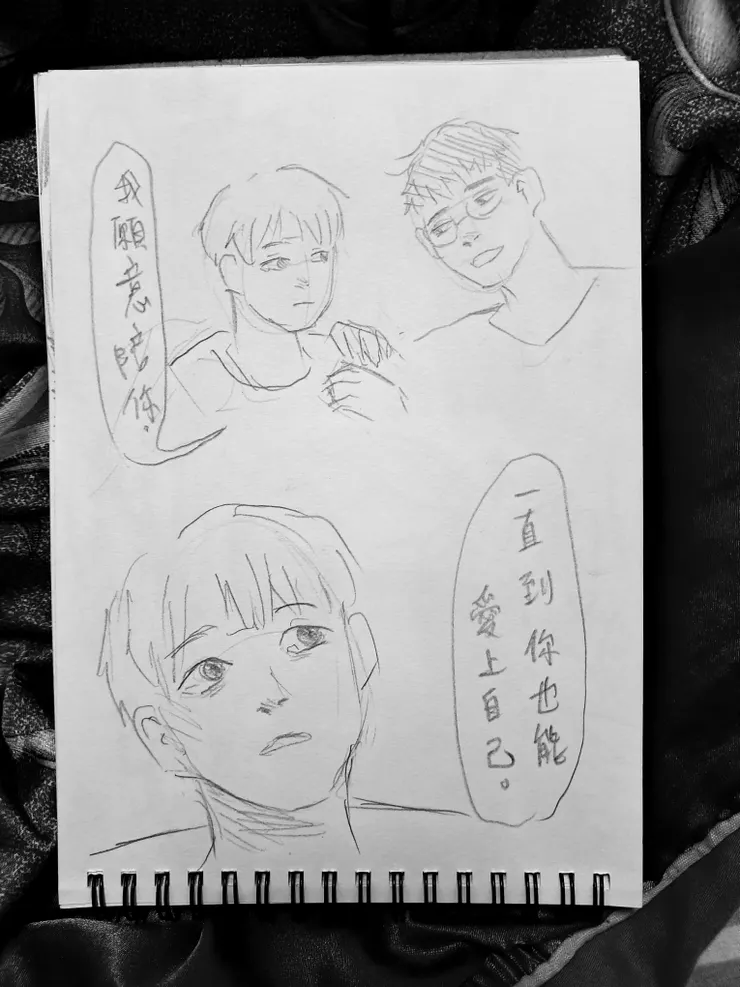 我願意陪你。
一直到你也能
愛上自己。